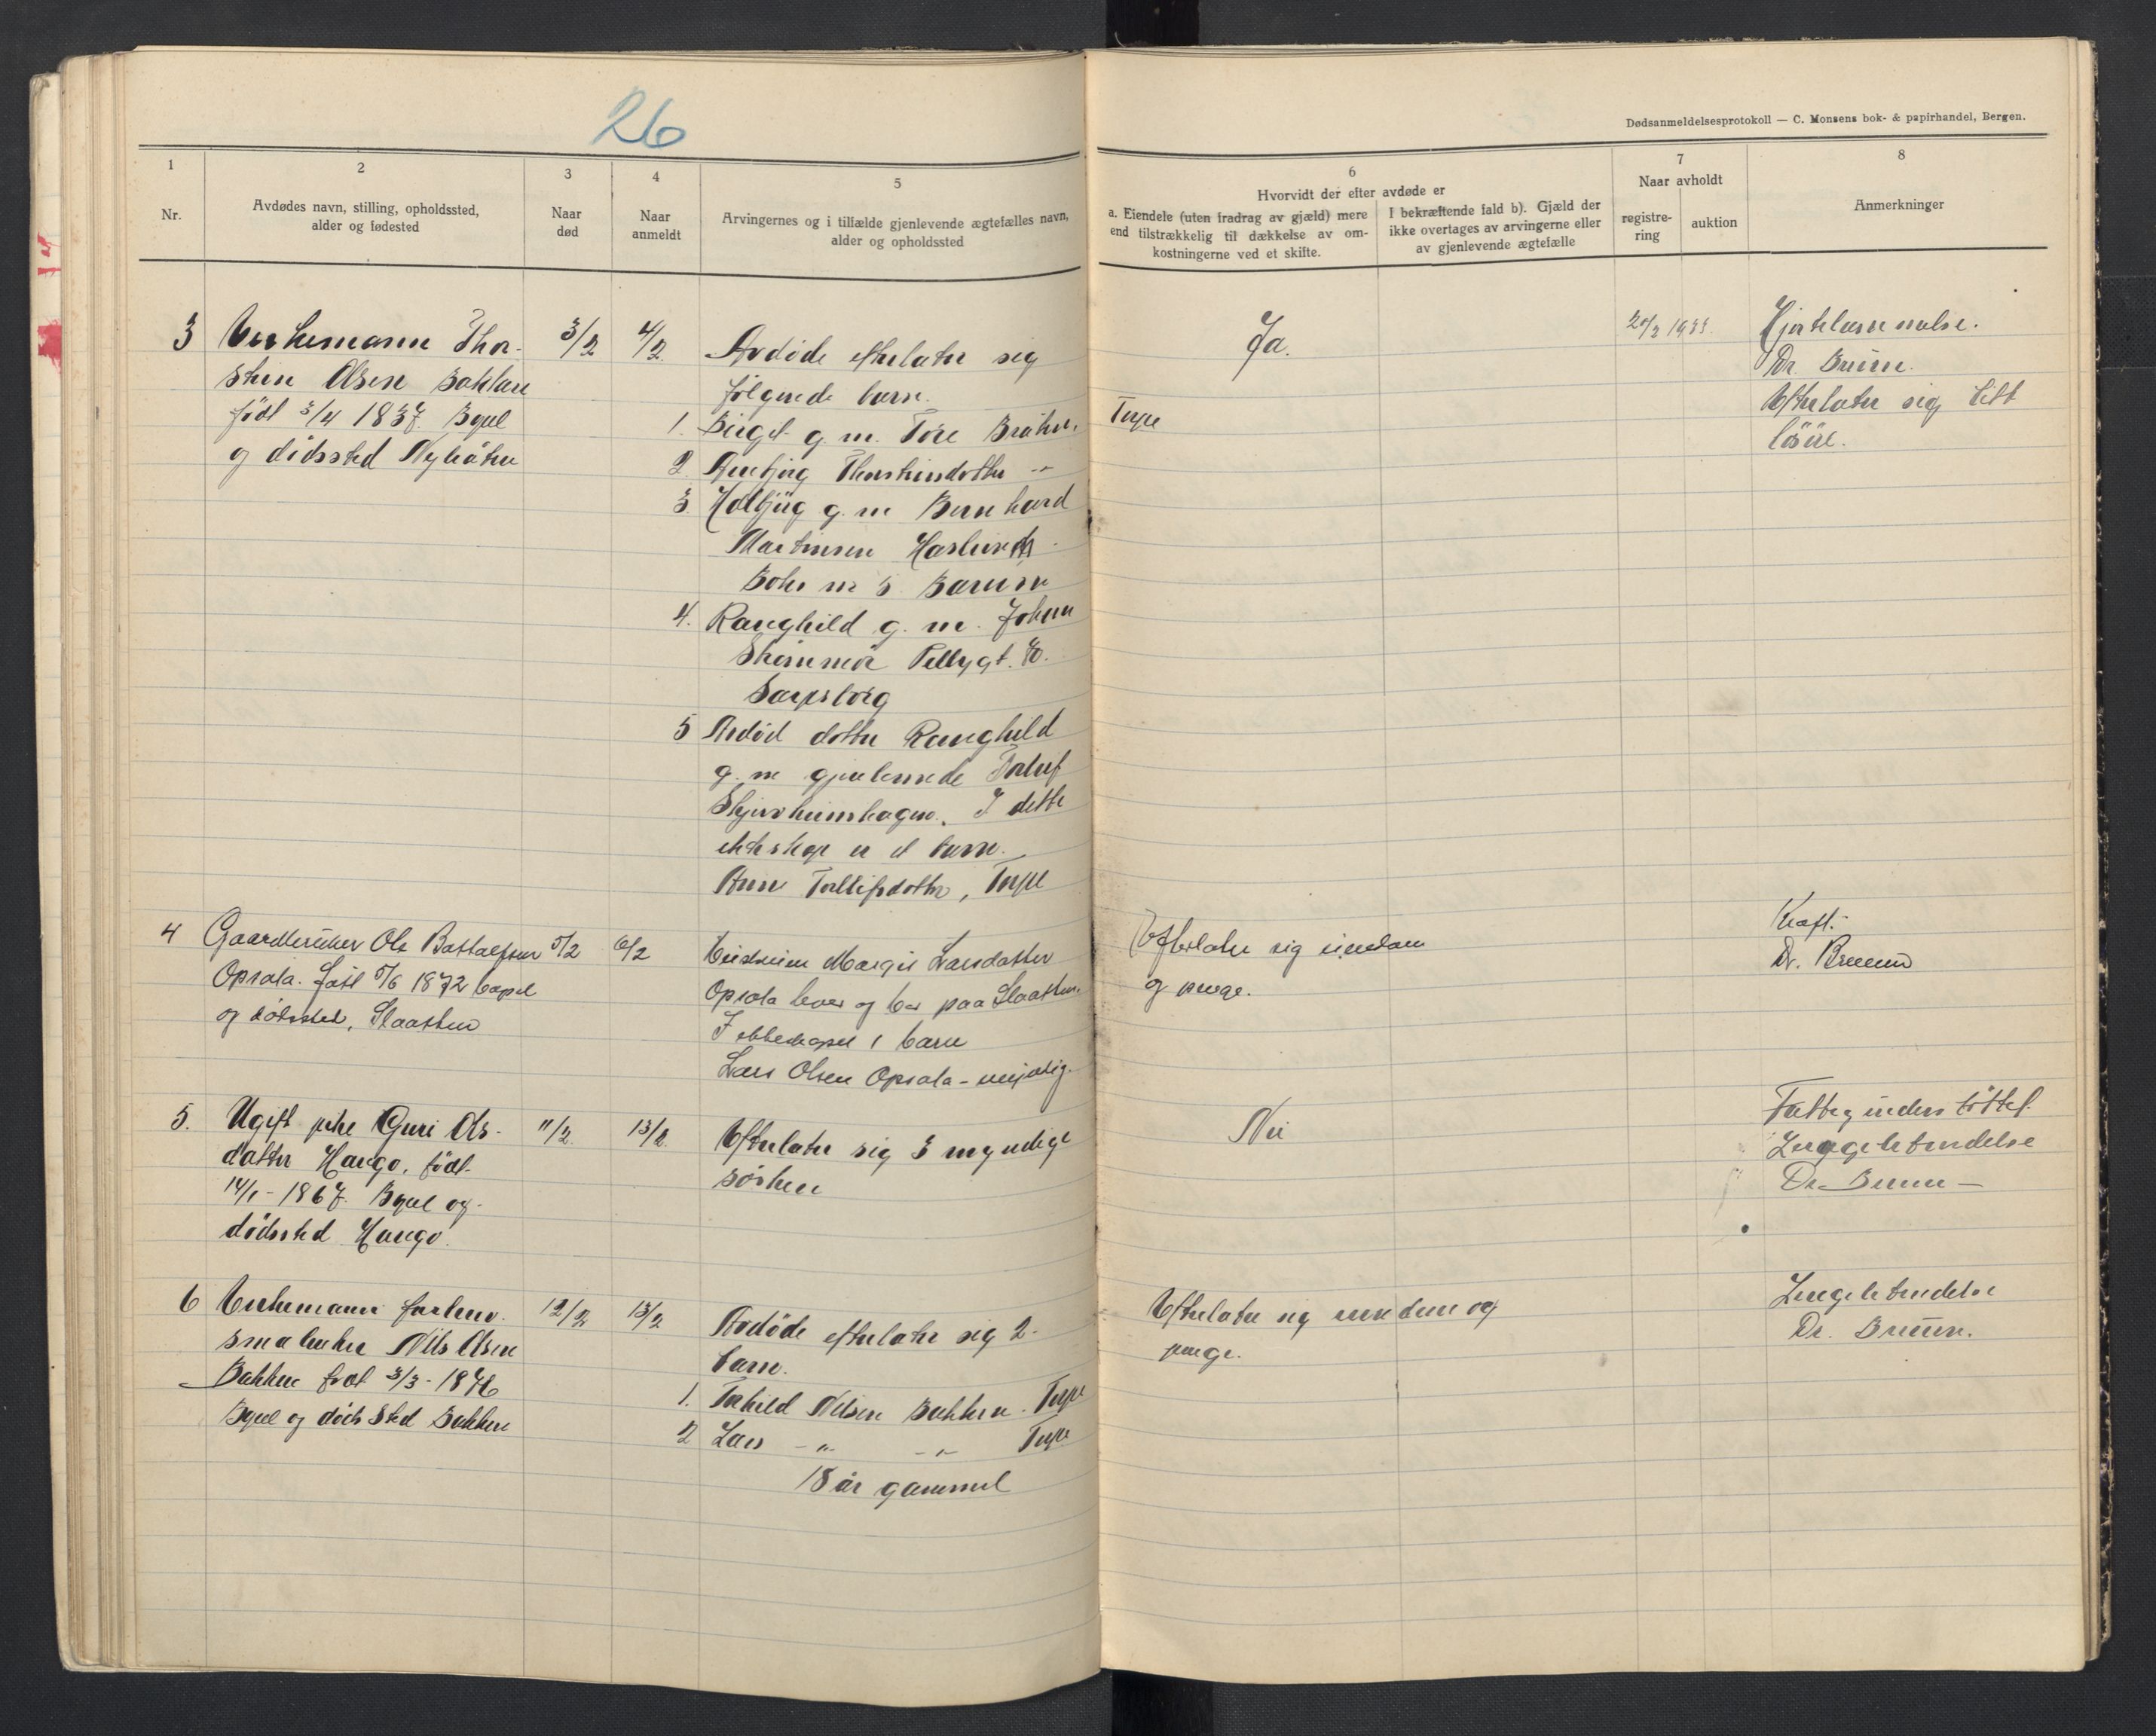 26
Dødsanmeldelsesprotokoll — C. Monsens bok- & papirhandel, Bergen.
1
Nr.
2
Avdødes navn, stilling, opholdssted,
alder og fødested
3
Naar
død
4
Naar
anmeldt
5
Arvingernes og i tilfælde gjenlevende ægtefælles navn,
alder og opholdssted
6
Hvorvidt der efter avdøde er
a. Eiendele (uten fradrag av gjæld) mere
end tilstrækkelig til dækkelse av om-
kostningerne ved et skifte.
I bekræftende fald b). Gjæld der
ikke overtages av arvingerne eller
av gjenlevende ægtefælle
7
Naar avholdt
registre-
ring
auktion
8
Anmerkninger
3 Enkemann Thor-
sten Olsen Bakken
født 3/4 1837. Bopel
og dödssted Nybråten
3/2
4/2
Avdöde efterlater sig
følgende barn.
1. Birgit g. m. Tore Bråten, Torpe
2 Ambjörg Thorsteinsdotter -"-
3 Holbjörg g. m Bernhard
Martinsen Haslund
Boks nr 3 Bærum
4. Ranghild g. m. Johan
Sarpsborg
5 Avdöd dotter Ranghild
g. m gjenlevende Torleif
Skjerheimhagen. I dette
ekteskap er et barn.
Anne Torleifsdotter, Torpe
Ja.
20/2 1933.
Hjertelammelse.
Dr. Bruun.
Efterlater sig litt
lösöre.
4 Gaardbruker Ole Bottolfsen
Opsata. født 5/6 1872 bopel
og dødssted, Slaatten
5/2
6/2
Enkeien Margit Larsdatter
Opsata lever og bor paa Slaatten.
I ekteskapet 1 barn
Lars Olsen Opsata - umyndig.
Efterlater sig eiendom
og penge.
Kræft.
Dr. Bruun
5. Ugift pike Guri Ols-
datter Haugo, født
14/1 - 1867. Bopel og
dödssted Haugo.
11/2
13/2
Efterlater sig 3 myndige
søsken
Nei
Fattigunderstöttet.
Lungebetendelse
Dr. Bruun —
6 Enkemann forhenv.
småbruker Nils Olsen
Bakken født 3/3 - 1876
Bopel og dödssted Bakken
12/2
13/2
Avdöde efterlater sig 2
barn.
1. Torkild Nilsen Bakken. Torpe
2 Lars -"- -"- Torpe
18 år gammel
Efterlater sig eiendom og
penge.
Lungebetendelse
Dr. Bruun.